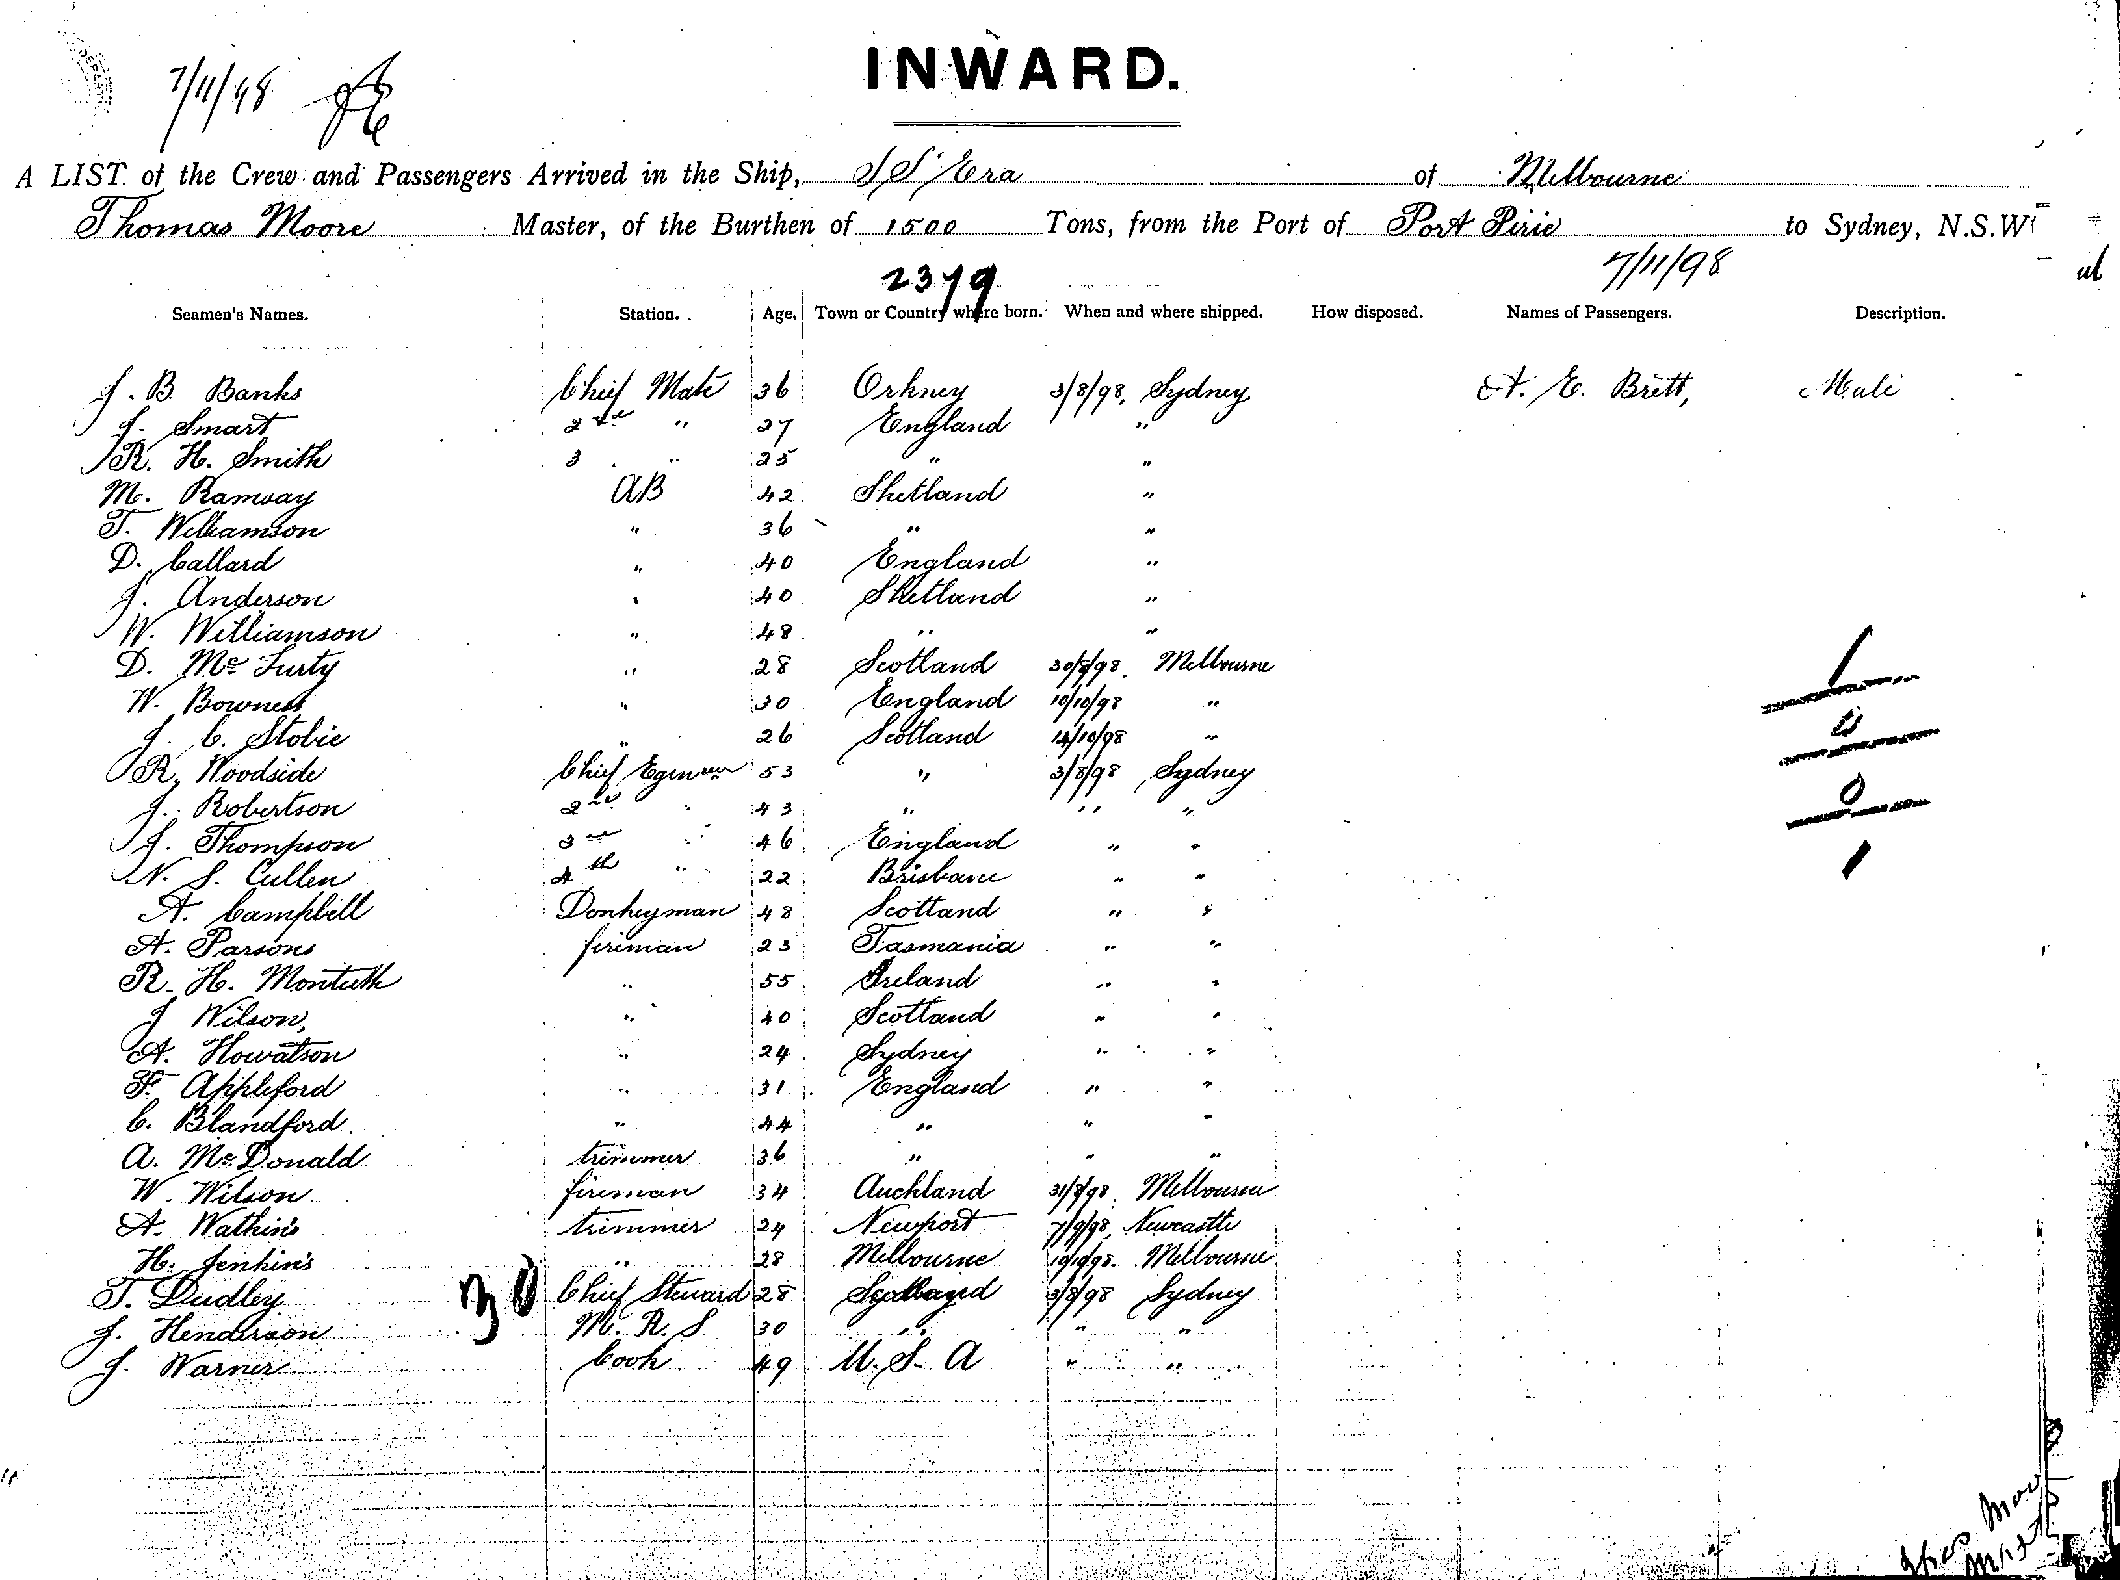 INWARD.
7/11/98
A LIST of the Crew and Passengers Arrived in the Ship, SS Era of Melbourne
Thomas Moore Master, of the Burthen of 1500 Tons, from the Port of Port Pirie to Sydney, N.S.W
2379 7/11/98
Seamen's Names. Station. Age. Town or Country where born. When and where shipped. How disposed. Names of Passengers. Description.
J. B Banks Chief Mate 36 Orkney 3/8/98, Sydney A. E. Brett, Male
J. Smart 2nd " 27 England "
R. H. Smith 3 " 25 " "
M. Ramsay AB 42 Shetland "
T. Williamson " 36 " "
D. Callard " 40 England "
J. Anderson " 40 Shetland "
W. Williamson " 48 " "
D. Mc Turty " 28 Scotland 30/8/98. Melbourne
W. Bowness " 30 England 10/10/98 "
J. C. Stobie " 26 Scotland 14/10/98 "
R. Woodside Chief 53 " 3/8/98 Sydney
J. Robertson 2nd " 43 " " "
J. Thompson 3rd " 46 England " "
N. S. Cullen 4th " 22 Brisbane " "
A. Campbell Donkeyman 48 Scotland " "
A. Parsons fireman 23 Tasmania " "
R. H. Montieth " 55 Ireland " "
J Wilson, " 40 Scotland " "
A. Howatson " 24 Sydney " "
F. Appleford " 31 England " "
C. Blandford. " 44 " " "
A. McDonald trimmer 36 " " "
W. Wilson fireman 34 Auckland 31/8/98. Melbourne
A. Watkins trimmer 24 Newport 7/9/98, Newcastle
H. Jenkins " 28 Melbourne 10/10/98. Melbourne
T. Dudley 30 Chief Steward 28 3/8/98 Sydney
J. Henderson M. R. S 30 " " "
J. Warner Cook 49 U. S. A " "